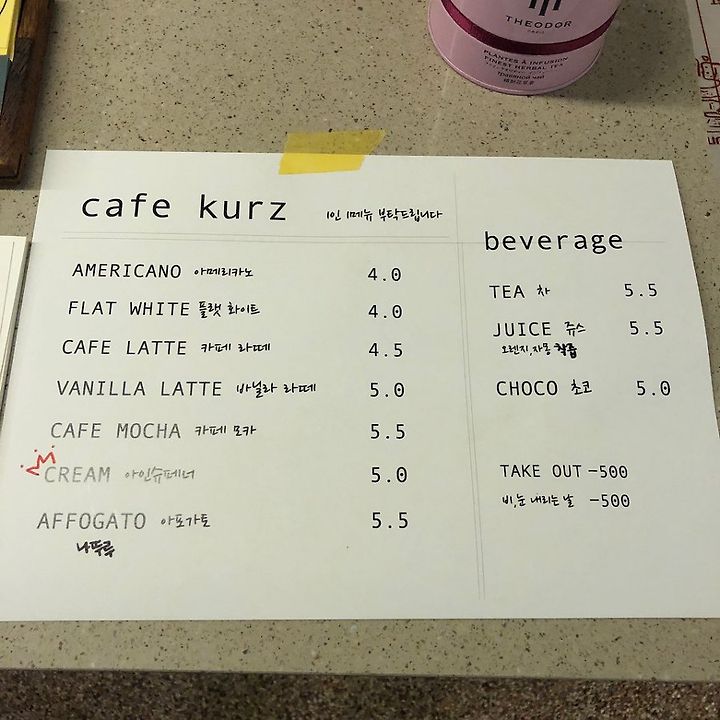 THEODOR
PARIS
PLANTES À INFUSION
FINEST HERBAL TEA
травяной чай
cafe kurz 1인 1메뉴 부탁드립니다
AMERICANO 아메리카노 4.0
FLAT WHITE 플랫 화이트 4.0
CAFE LATTE 카페 라떼 4.5
VANILLA LATTE 바닐라 라떼 5.0
CAFE MOCHA 카페 모카 5.5
CREAM 아인슈페너 5.0
AFFOGATO 아포가토 5.5
나뚜루
beverage
TEA 차 5.5
JUICE 쥬스 5.5
오렌지,자몽 착즙
CHOCO 초코 5.0
TAKE OUT -500
비,눈 내리는 날 -500